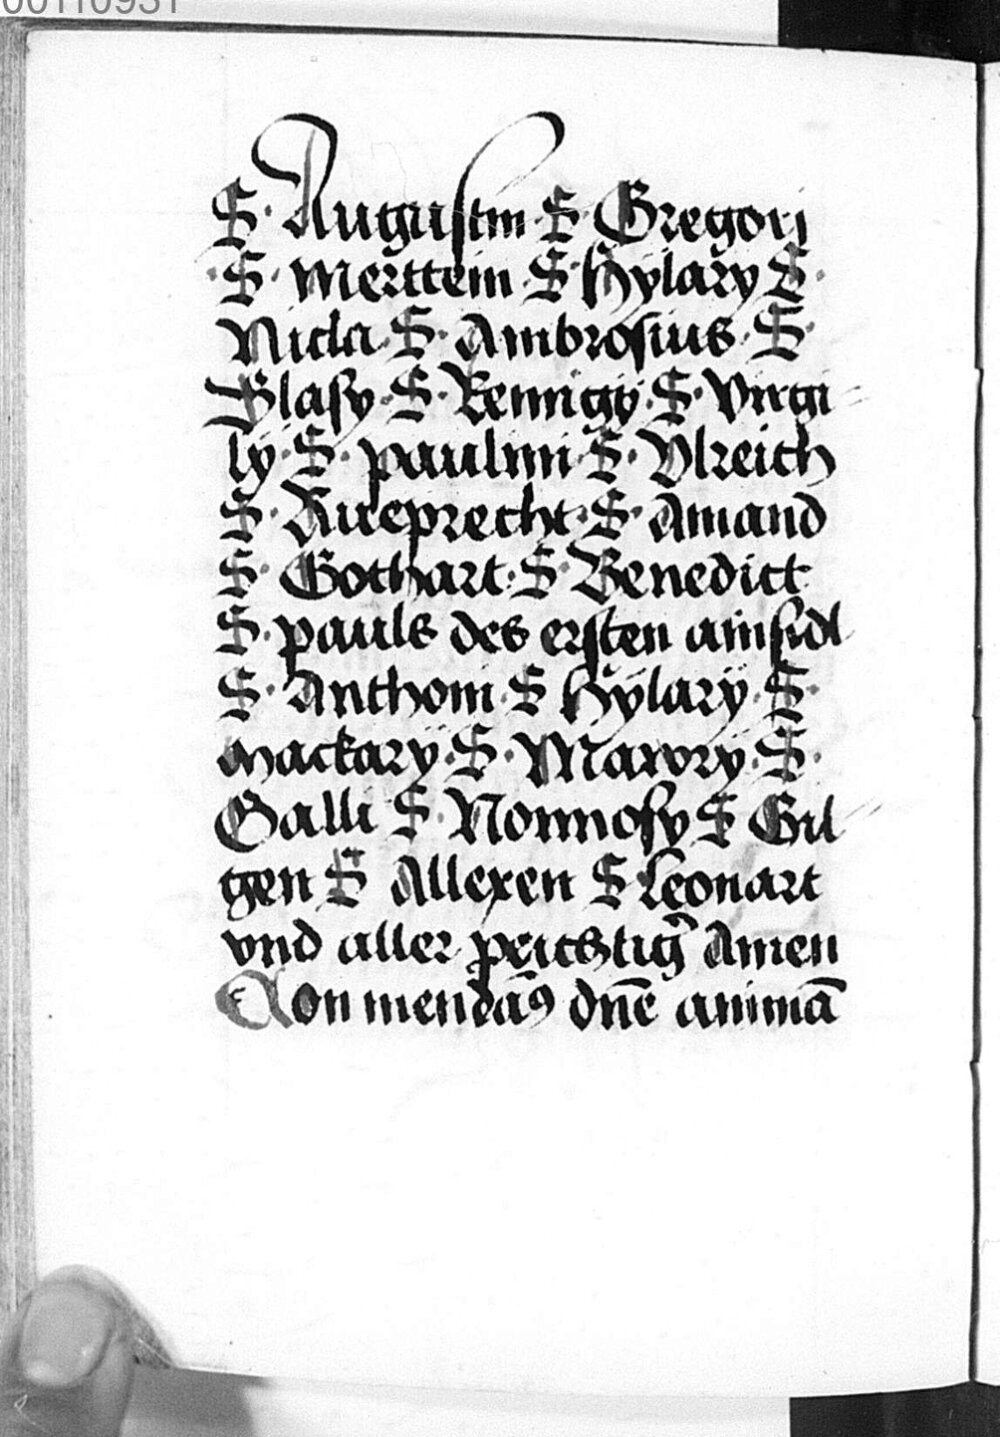 00110931
S· Augustin S· Gregorj
·S· Merttein S· Hÿlarÿ S·
Nicla S· Ambrosius S·
Blasy S· Remigÿ S· Virgi-
lÿ S· paulini S· Vlreich
S· Rueprecht S· Amand
S· Gothart S· Benedict
S· pauls des ersten ainsidl
S· Anthoni S· Hÿlarÿ S·
mackarÿ S· S·
Galli S· Nonnosy S Gil-
gen S Allexen S Leonart
vnd aller Amen
Con mendam9 dn̄e animā